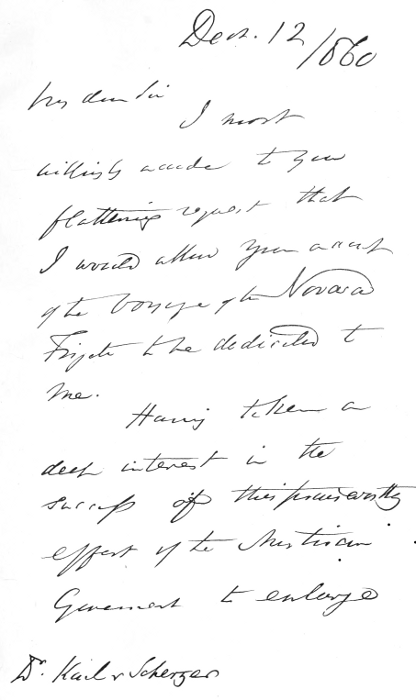 Decr. 12
/860
My dear Sir
I most
willingly accede to your
flattering request that
I would allow your account
of the Voyage of the Novara
Frigate to be dedicated to
me.
Having taken a
deep interest in the
success of this praiseworthy
effort of the Austrian
Government to enlarge
Dr. Karl v Scherzer